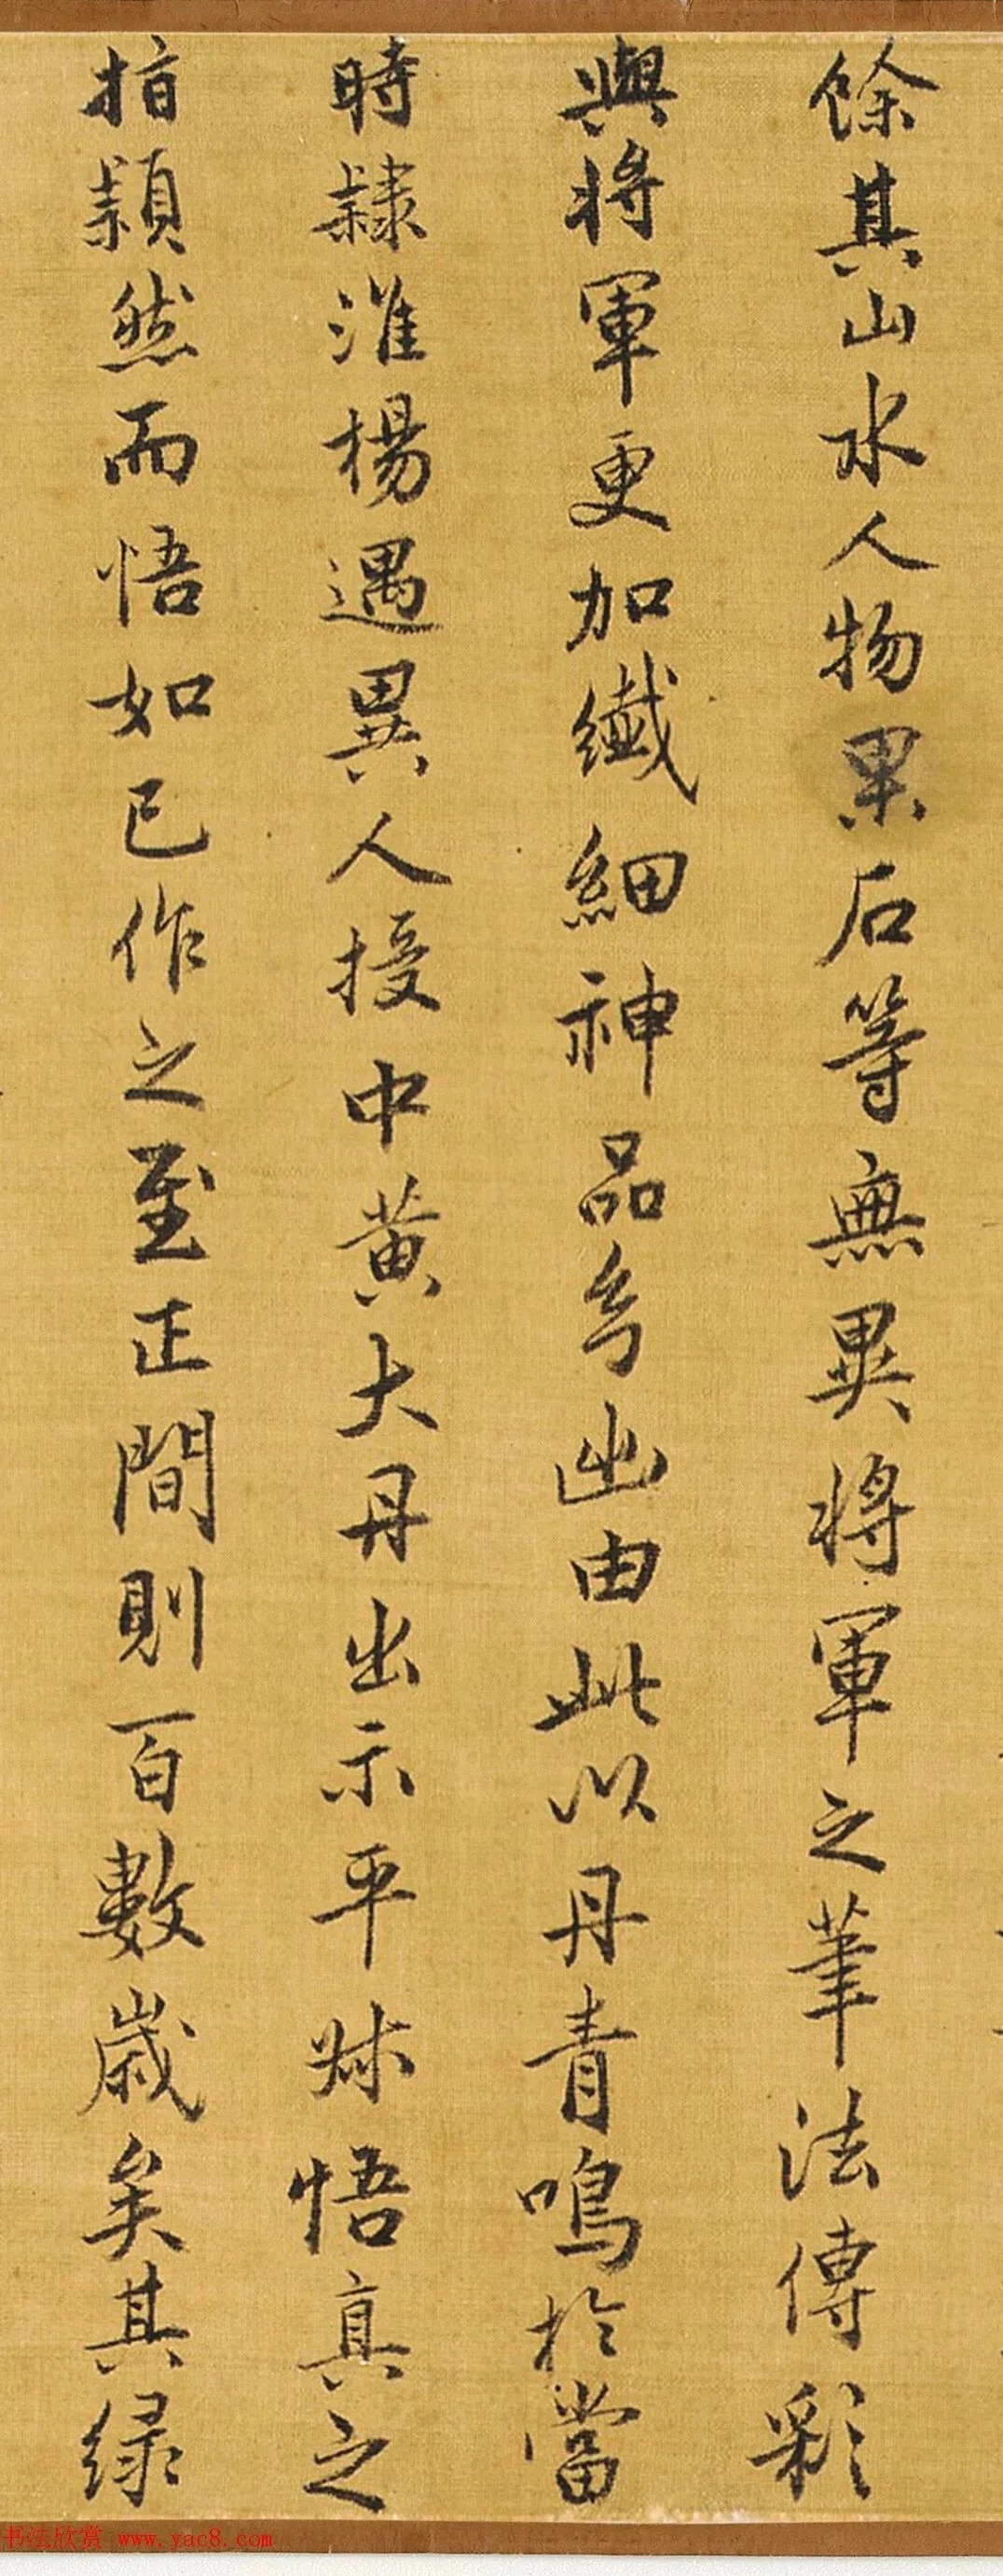 餘其山水人物果石等無異將軍之筆法傅彩
與將軍更加纖細神品幽由此以丹青鳴於當
時隸淮楊遇異人授中黃大丹出示平悟真之
指頴然而悟如已作之至正間則百數歲矣其绿
书法欣赏 www.yac8.com